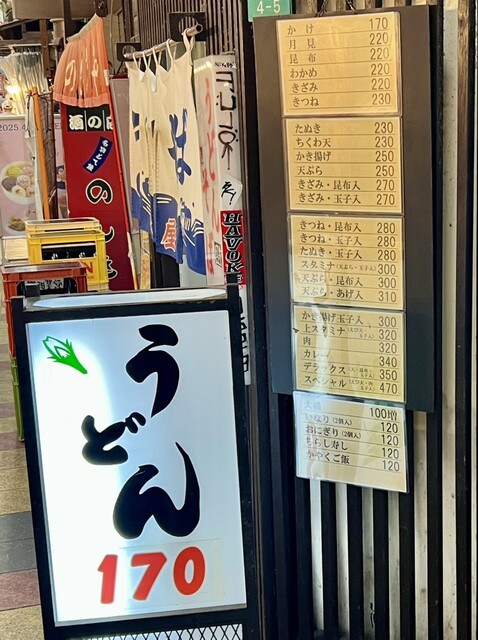 4-5
かけ 170
月見 220
昆布 220
わかめ 220
きざみ 220
きつね 230
たぬき 230
ちくわ天 230
かき揚げ 250
天ぷら 250
きざみ・昆布入 270
きざみ・玉子入 270
きつね・昆布入 280
きつね・玉子入 280
たぬき・玉子入 280
スタミナ(天ぷら・玉子入) 300
天ぷら・昆布入 300
天ぷら・あげ入 310
かき揚げ玉子入 300
上スタミナ 320
肉 320
カレー 340
デラックス 350
スペシャル 470
大盛 100増
いなり(2個入) 120
おにぎり(2個入) 120
ちらし寿し 120
かやくご飯 120
酒の
2025.4
HAVOK
うどん
170